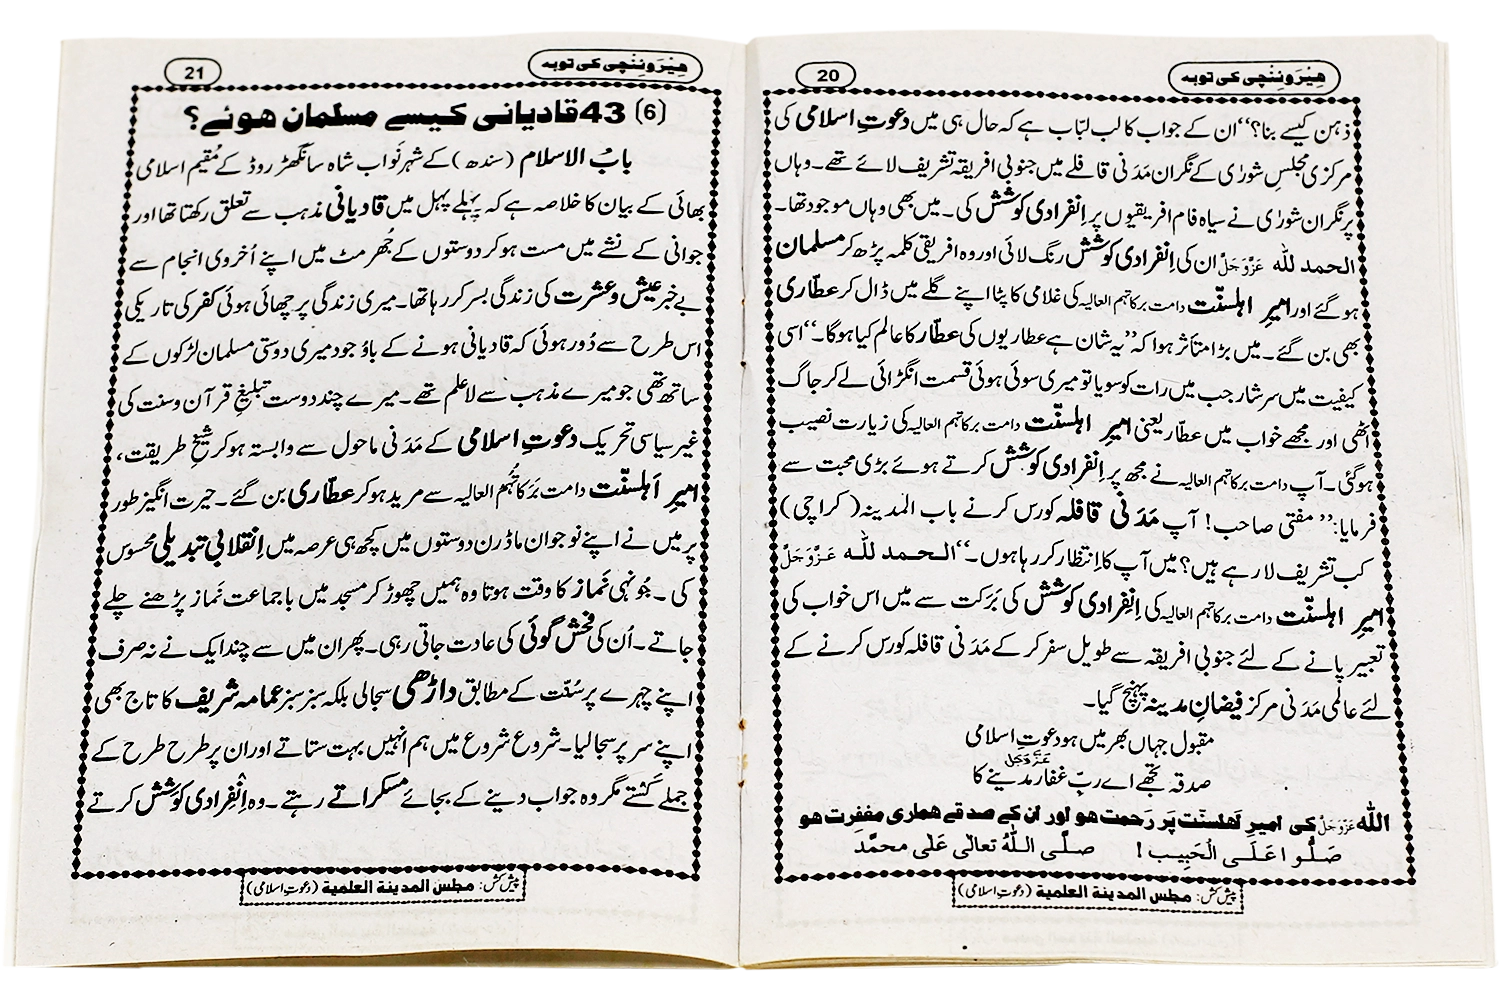 ھِیْرَوئِنچی کی توبہ
20
ذہن کیسے بنا؟‘‘ان کے جواب کا لب لبّاب ہے کہ حال ہی میں دعوتِ اسلامی کی
مرکزی مجلسِ شورٰی کے نگران مَدَنی قافلے میں جنوبی افریقہ تشریف لائے تھے۔ وہاں
پر نگرانِ شورٰی نے سیاہ فام افریقیوں پر اِنفرادی کوشش کی۔ میں بھی وہاں موجود تھا۔
الحمد للہ عَزَّوَجَلَّ ان کی اِنفرادی کوشش رنگ لائی اور وہ افریقی کلمہ پڑھ کر مسلمان
ہو گئے اور امیرِ اہلسنّت دامت برکاتہم العالیہ کی غلامی کا پٹا اپنے گلے میں ڈال کر عطّاری
بھی بن گئے۔ میں بڑا متأثر ہوا کہ ’’یہ شان ہے عطاریوں کی عطّار کا عالم کیا ہوگا۔‘‘اسی
کیفیت میں سرشار جب میں رات کو سویا تو میری سوئی ہوئی قسمت انگڑائی لے کر جاگ
اُٹھی اور مجھے خواب میں عطّار یعنی امیرِ اہلسنّت دامت برکاتہم العالیہ کی زیارت نصیب
ہو گئی۔ آپ دامت برکاتہم العالیہ نے مجھ پر اِنفرادی کوشش کرتے ہوئے بڑی محبت سے
فرمایا:’’مفتی صاحب! آپ مَدَنی قافلہ کورس کرنے باب المدینہ (کراچی)
کب تشریف لا رہے ہیں؟ میں آپ کا اِنتظار کر رہا ہوں۔‘‘الحمد للہ عَزَّوَجَلَّ
امیرِ اہلسنّت دامت برکاتہم العالیہ کی اِنفرادی کوشش کی بَرَکت سے میں اس خواب کی
تعبیر پانے کے لئے جنوبی افریقہ سے طویل سفر کر کے مَدَنی قافلہ کورس کرنے کے
لئے عالمی مَدَنی مرکز فیضانِ مدینہ پہنچ گیا۔
مقبول جہاں بھر میں ہو دعوتِ اسلامی
صدقہ تجھے اے ربِّ غفار عَزَّوَجَلَّ مدینے کا
اللہ عَزَّوَجَلَّ کی امیرِ اَھلسنّت پَر رَحمت ھو اور اُن کے صدقے ھماری مغفِرت ھو
صَلُّوا عَلَی الْحَبِیب! صلَّی اللّٰہُ تعالٰی عَلٰی محمَّد
پیش کش: مجلس المدینۃ العلمیۃ (دعوتِ اسلامی)
ھِیْرَوئِنچی کی توبہ
21
(6) 43 قادیانی کیسے مسلمان ھوئے؟
بابُ الاسلام (سندھ) کے شہر نَواب شاہ سانگھڑ روڈ کے مُقیم اسلامی
بھائی کے بیان کا خلاصہ ہے کہ پہلے پہل میں قادیانی مذہب سے تعلق رکھتا تھا اور
جوانی کے نشے میں مست ہو کر دوستوں کے جُھرمٹ میں اپنے اُخروی انجام سے
بے خبر عیش و عشرت کی زندگی بسر کر رہا تھا۔ میری زندگی پر چھائی ہوئی کفر کی تاریکی
اس طرح سے دُور ہوئی کہ قادیانی ہونے کے باوُجود میری دوستی مسلمان لڑکوں کے
ساتھ تھی جو میرے مذہب سے لاعلم تھے۔ میرے چند دوست تبلیغِ قرآن و سنت کی
غیر سیاسی تحریک دعوتِ اسلامی کے مَدَنی ماحول سے وابستہ ہو کر شیخِ طریقت،
امیرِ اَہلسنّت دامت بَرَکاتُہُم العالیہ سے مرید ہو کر عطّاری بن گئے۔ حیرت انگیز طور
پر میں نے اپنے نوجوان ماڈرن دوستوں میں کچھ ہی عرصہ میں اِنقلابی تبدیلی محسوس
کی۔ جُونہی نَماز کا وقت ہوتا وہ ہمیں چھوڑ کر مسجد میں با جماعت نَماز پڑھنے چلے
جاتے۔ اُن کی فحش گوئی کی عادت جاتی رہی۔ پھر ان میں سے چند ایک نے نہ صرف
اپنے چہرے پر سُنّت کے مطابق داڑھی سجالی بلکہ سبز سبز عمامہ شریف کا تاج بھی
اپنے سر پر سجا لیا۔ شروع شروع میں ہم اُنہیں بہت ستاتے اور ان پر طرح طرح کے
جملے کَستے مگر وہ جواب دینے کے بجائے مسکراتے رہتے۔ وہ اِنفرادی کوشش کرتے
پیش کش: مجلس المدینۃ العلمیۃ (دعوتِ اسلامی)